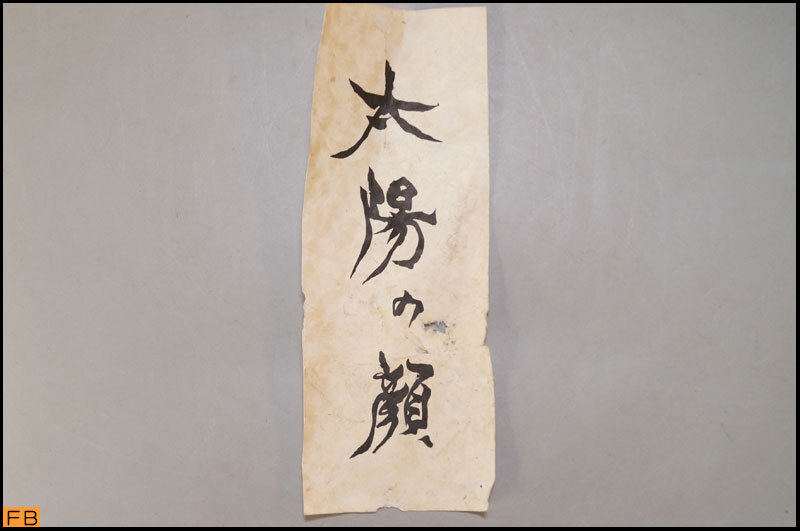 太陽の顔
FB